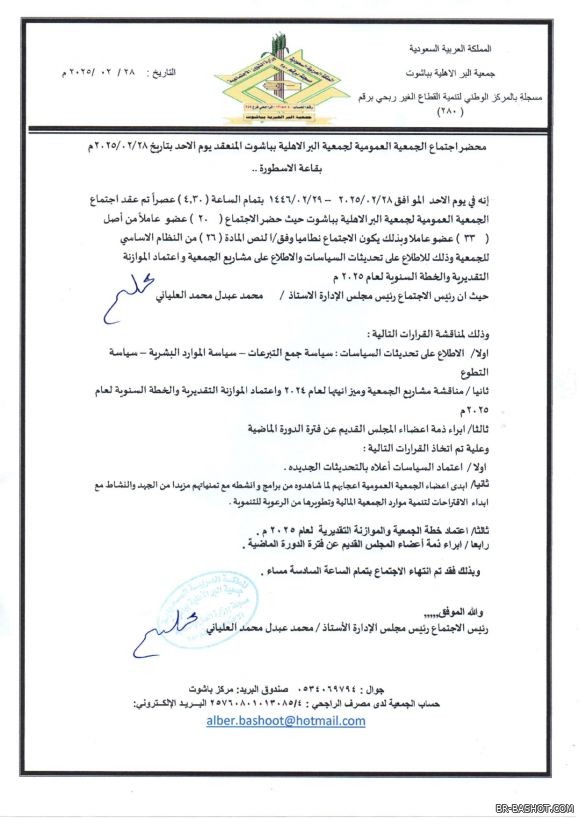 المملكة العربية السعودية
جمعية البر الاهلية بباشوت
مسجلة بالمركز الوطني لتنمية القطاع الغير ربحي برقم
( ٢٨٠ )
التاريخ : ٢٨ / ٠٢ /٢٠٢٥ م
جمعية البر الخيرية بباشوت
محضر اجتماع الجمعية العمومية لجمعية البر الاهلية بباشوت المنعقد يوم الاحد بتاريخ ٢٠٢٥/٠٢/٢٨م
بقاعة الاسطورة ..
إنه في يوم الاحد الموافق ٢٠٢٥/٠٢/٢٨ – ١٤٤٦/٠٢/٢٩ بتمام الساعة ( ٤,٣٠ ) عصراً تم عقد اجتماع
الجمعية العمومية لجمعية البر الاهلية بباشوت حيث حضر الاجتماع ( ٢٠ ) عضو عاملاً من أصل
( ٣٣ ) عضو عاملا وبذلك يكون الاجتماع نظاميا وفق/ا لنص المادة ( ٢٦ ) من النظام الاساسي
للجمعية وذلك للاطلاع على تحديثات السياسات والاطلاع على مشاريع الجمعية و اعتماد الموازنة
التقديرية والخطة السنوية لعام ٢٠٢٥ م
حيث ان رئيس الاجتماع رئيس مجلس الإدارة الاستاذ / محمد عبدل محمد العلياني
وذلك لمناقشة القرارات التالية :
اولا/ الاطلاع على تحديثات السياسات : سياسة جمع التبرعات – سياسة الموارد البشرية – سياسة
التطوع
ثانيا / مناقشة مشاريع الجمعية وميزانيتها لعام ٢٠٢٤ واعتماد الموازنة التقديرية والخطة السنوية لعام
٢٠٢٥م
ثالثا/ ابراء ذمة اعضااء المجلس القديم عن فترة الدورة الماضية
وعلية تم اتخاذ القرارات التالية :
اولا / اعتماد السياسات أعلاه بالتحديثات الجديده .
ثانيا/ ابدى اعضاء الجمعية العمومية اعجابهم لما شاهدوه من برامج و انشطه مع تمنياتهم مزيدا من الجهد والنشاط مع
ابداء الاقتراحات لتنمية موارد الجمعية المالية وتطويرها من الرعوية للتنموية .
ثالثا/ اعتماد خطة الجمعية والموازنة التقديرية لعام ٢٠٢٥ م .
رابعا / ابراء ذمة أعضاء المجلس القديم عن فترة الدورة الماضية .
وبذلك فقد تم انتهاء الاجتماع بتمام الساعة السادسة مساء .
والله الموفق,,,,,
رئيس الاجتماع رئيس مجلس الإدارة الأستاذ / محمد عبدل محمد العلياني
جوال : ٠٥٣٤٠٦٩٧٩٤ صندوق البريد: مركز باشوت
حساب الجمعية لدى مصرف الراجحي : ٢٥٧٦٠٨٠١٠١٣٠٨٥/٤ البـريـد الإلكتـروني:
alber.bashoot@hotmail.com
BR-BASHOT.COM